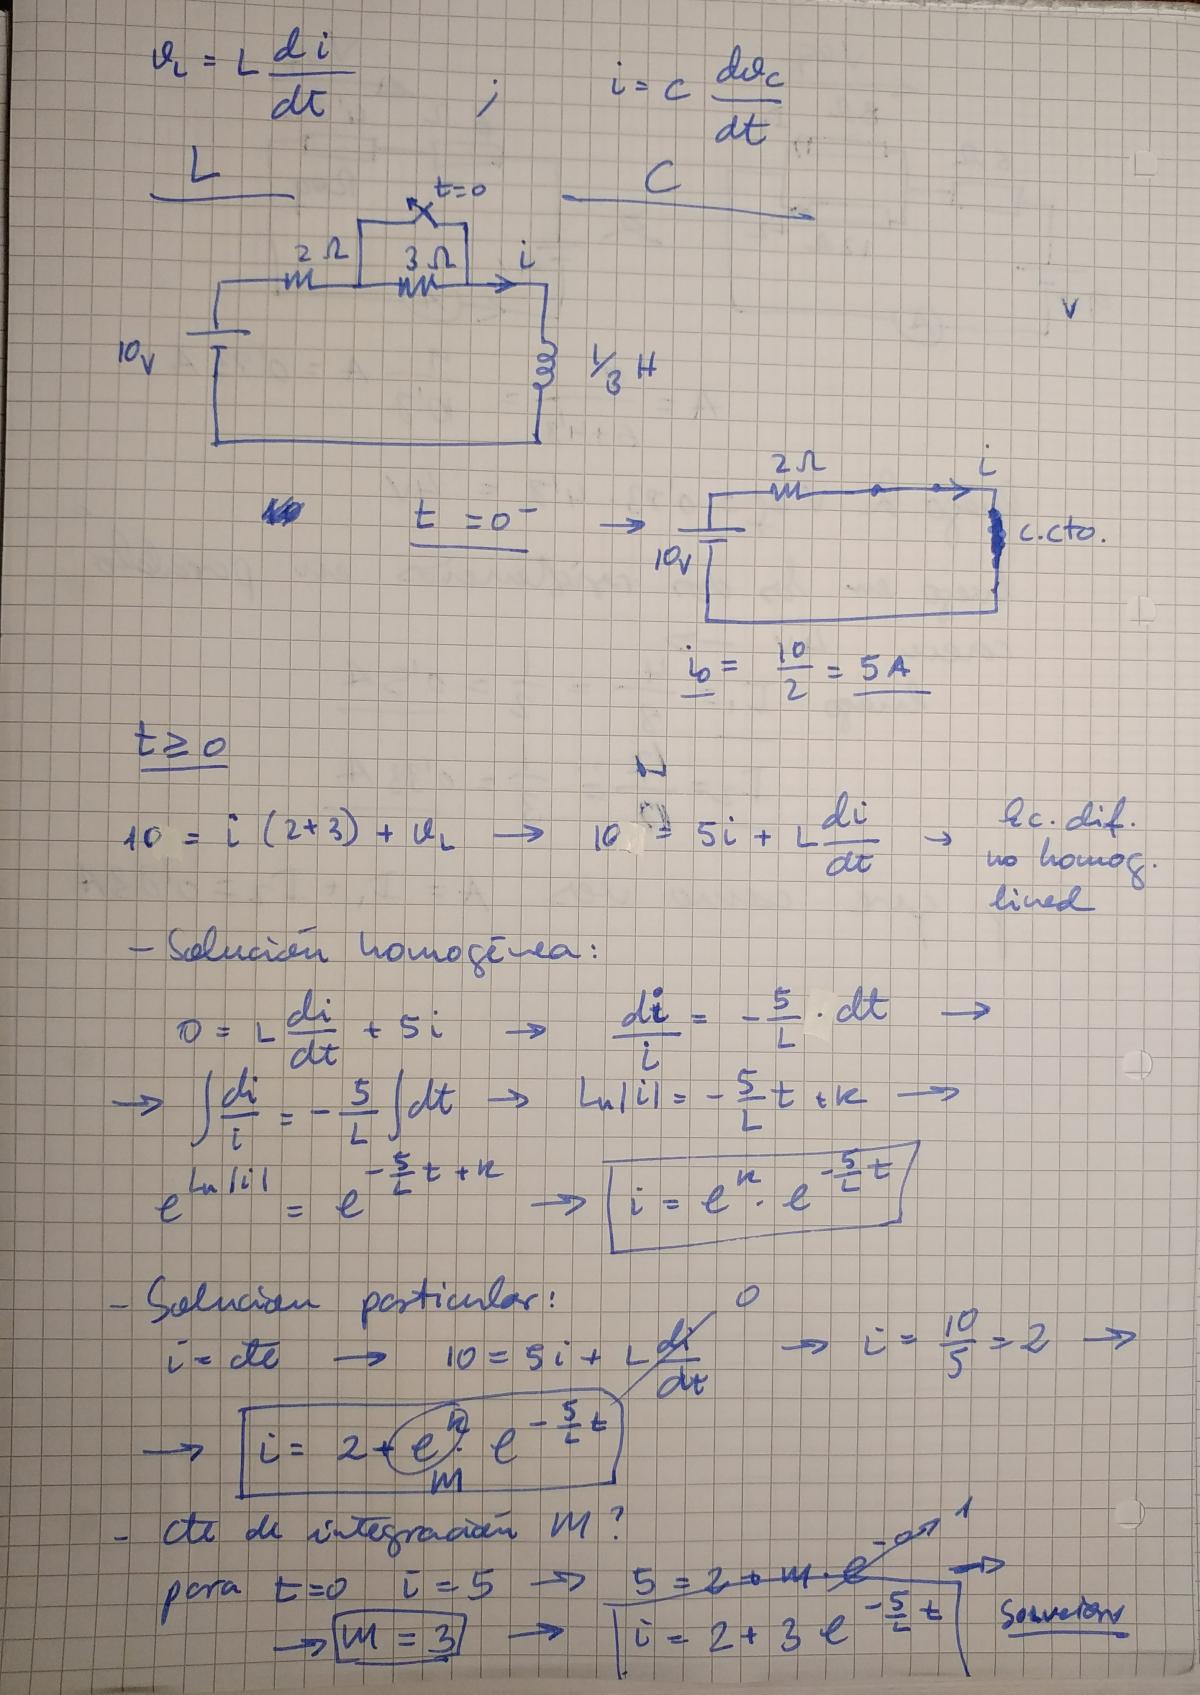 v_L = L di/dt ; i = C dv_c/dt
L C
t=0
2 Ω 3 Ω i
10V 1/3 H
2 Ω i
t = 0⁻ → 10V c.cto.
i₀ = 10/2 = 5 A
t ≥ 0
10 = i (2+3) + v_L → 10 = 5i + L di/dt → Ec. dif.
no homog.
lineal
- Solución homogénea:
0 = L di/dt + 5i → di/i = - 5/L · dt →
→ ∫ di/i = - 5/L ∫ dt → Ln|i| = - 5/L t + K →
e^(Ln|i|) = e^(-5/L t + K) → i = e^K · e^(-5/L t)
- Solución particular:
i = cte → 10 = 5i + L di/dt 0 → i = 10/5 = 2 →
→ i = 2 + e^K · e^(-5/L t)
m
- Cte de integración m?
para t=0 i = 5 → 5 = 2 + m · e^-0 1 →
→ m = 3 → i = 2 + 3 e^(-5/L t) Solución